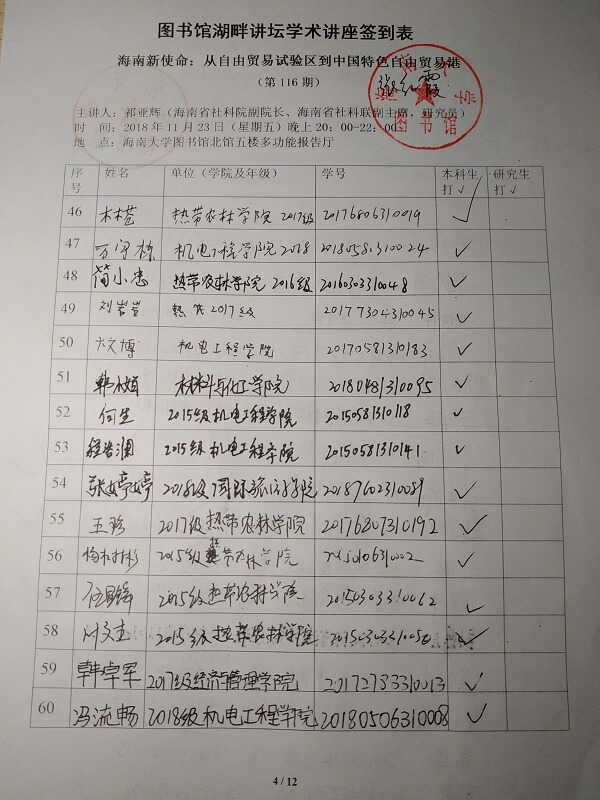 图书馆湖畔讲坛学术讲座签到表
海南新使命：从自由贸易试验区到中国特色自由贸易港
（第 116 期）
主讲人：祁亚辉（海南省社科院副院长、海南省社科联副主席，研究员）
时 间：2018 年 11 月 23 日（星期五）晚上 20：00-22：00
地 点：海南大学图书馆北馆五楼多功能报告厅
图书馆
序号 姓名 单位（学院及年级） 学号 本科生打√ 研究生打√
46 热带农林学院 2017级 20176806310019 √
47 万守栋 机电工程学院2018 20180581310024 √
48 简小忠 热带农林学院 2016级 20160303310048 √
49 刘岩莹 热农2017级 20177304310045 √
50 文博 机电工程学院 20170581310183 √
51 韩 材料与化工学院 20180481310095 √
52 何生 2015级机电工程学院 20150581310118 √
53 程浩澜 2015级机电工程学院 20150581310141 √
54 张婷婷 2018级国际旅游学院 20187602310089 √
55 王珍 2017级热带农林学院 20176807310192 √
56 2015级热带农林学院 √
57 2015级热带农林学院 20150303310062 √
58 2015级热带农林学院 √
59 韩宰军 2017级经济与管理学院 20172783310013 √
60 冯流畅 2018级机电工程学院 20180506310008 √
4 / 12